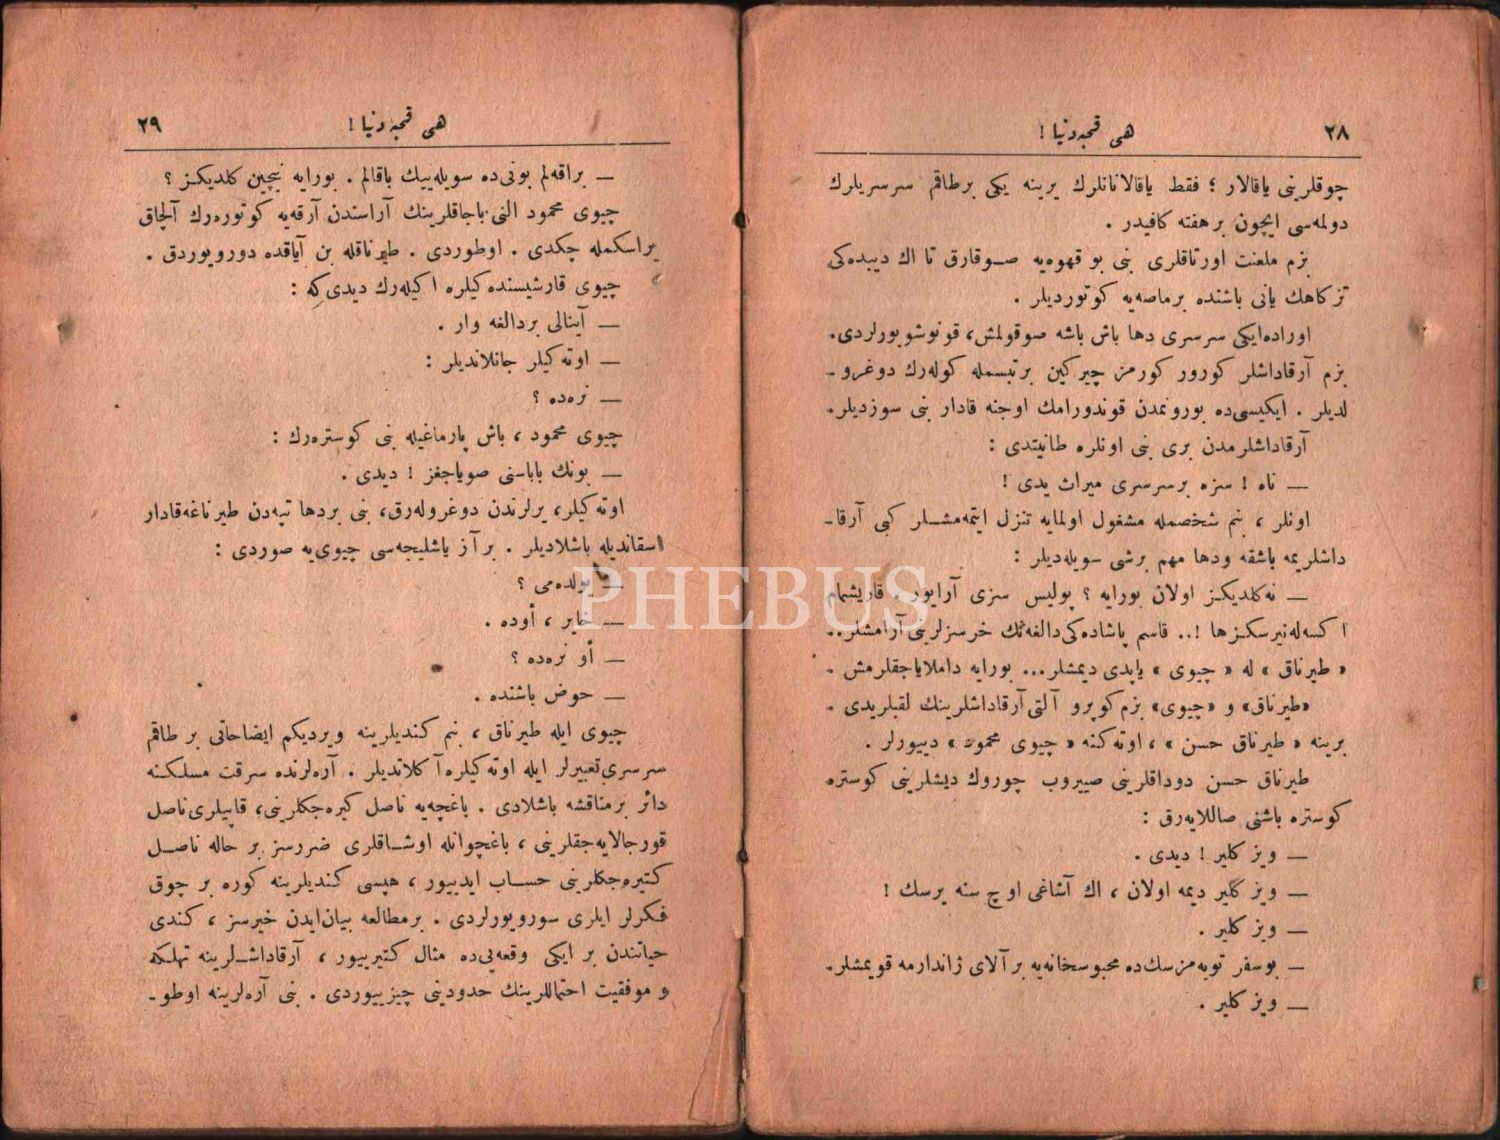 ٢٨
هی قحبه دنیا !
چوقلرینی یاقالار ؛ فقط یاقالانانلرك یرینه یكی برطاقم سرسریلرك
دولمه‌سی ایچون بر هفته كافیدر .
بزم ملعنت اورتاقلری بنی بو قهوه‌یه صوقارق تا اك دیبده‌كی
تزكاهك یانی باشنده برماصه‌یه كوتوردیلر .
اوراده ایكی سرسری دها باش باشه صوقولمش، قونوشویورلردی.
بزم آرقاداشلر كورور كورمز چیركین برتبسمله كوله‌رك دوغرو ـ
لدیلر . ایكیسی‌ده بورونمدن قوندورامك اوجنه قادار بنی سوزدیلر.
آرقاداشلرمدن بری بنی اونلره طانیتدی :
— ناه ! سزه برسرسری میراث یدی !
اونلر ، بنم شخصمله مشغول اولمایه تنزل ایتمه‌مشلر كبی آرقا ـ
داشلریمه باشقه ودها مهم برشی سویله‌دیلر :
— نه‌كلدیكز اولان بورایه ؟ پولیس سزی آرایور . قاریشمام
اكسه‌له‌نیرسكزها !.. قاسم پاشاده‌كی دالغه‌نك خرسزلرینی آرامشلر..
« طیرناق » له « چیوی » یاپدی دیمشلر... بورایه داملایاجقلرمش .
«طیرناق» و «چیوی» بزم كوپرو آلتی آرقاداشلرینك لقبلریدی .
برینه « طیرناق حسن » ، اوته‌كنه « چیوی محمود » دییورلر .
طیرناق حسن دوداقلرینی صییروب چوروك دیشلرینی كوستره
كوستره باشنی صاللایه‌رق :
— ویز كلیر ! دیدی .
— ویز كلیر دیمه اولان ، اك آشاغی اوچ سنه یرسك !
— ویز كلیر .
— بوسفر توبه‌مزسك‌ده محبوسخانه‌یه برآلای ژاندارمه قویمشلر.
— ویز كلیر .
٢٩
هی قحبه دنیا !
— براقه‌لم بونی‌ده سویله‌ییك باقالم . بورایه نیچین كلدیكز ؟
چیوی محمود النی باجاقلرینك آراسندن آرقه‌یه كوتوره‌رك آلچاق
براسكمله چكدی . اوطوردی . طیرناقله بن آیاقده دورویوردق .
چیوی قارشیسنده‌كیلره اكیله‌رك دیدی كه :
— آینالی بردالغه وار .
— اوته‌كیلر جانلاندیلر :
— نره‌ده ؟
چیوی محمود ، باش پارماغیله بنی كوستره‌رك :
— بونك باباسنی صویاجغز ! دیدی .
اوته‌كیلر، یرلرندن دوغروله‌رق، بنی بردها تپه‌دن طیرناغه‌قادار
اسقاندیله باشلادیلر . برآز یاشلیجه‌سی چیوی‌یه صوردی :
— یولده‌می ؟
— خایر ، أوده .
— أو نره‌ده ؟
— حوض باشنده .
چیوی ایله طیرناق ، بنم كندیلرینه ویردیكم ایضاحاتی بر طاقم
سرسری تعبیرلر ایله اوته‌كیلره آكلاتدیلر . آره‌لرنده سرقت مسلكنه
دائر برمناقشه باشلادی . باغچه‌یه ناصل كیره‌جكلرینی، قاپیلری‌ناصل
قورجالایه‌جقلرینی ، باغچوانله اوشاقلری ضررسز بر حاله ناصل
كتیره‌جكلرینی حساب ایدییور ، هپسی كندیلرینه كوره بر چوق
فكرلر ایلری سورویورلردی . برمطالعه بیان‌ایدن خیرسز ، كندی
حیاتندن بر ایكی وقعه‌یی‌ده مثال كتیرییور ، آرقاداشلرینه تهلكه
و موفقیت احتماللرینك حدودینی چیزییوردی . بنی آره‌لرینه اوطو ـ
PHEBUS